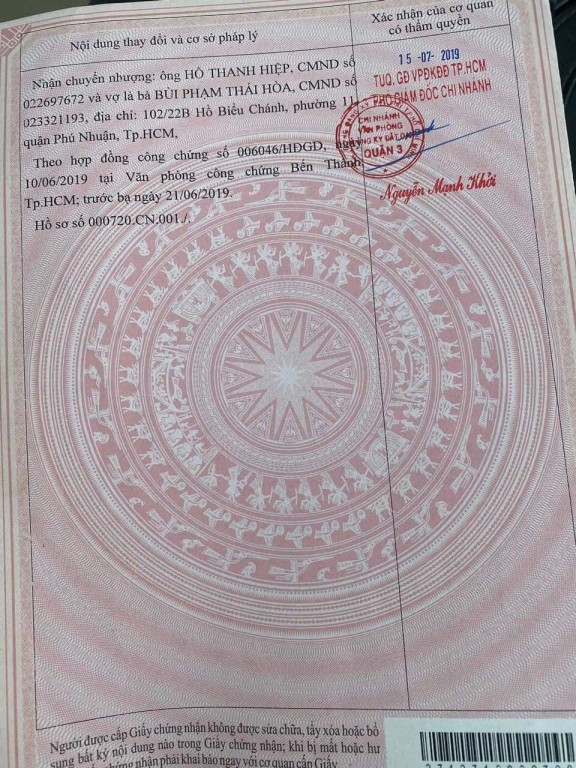 Nội dung thay đổi và cơ sở pháp lý
Xác nhận của cơ quan
có thẩm quyền
Nhận chuyển nhượng: ông HỒ THANH HIỆP, CMND số
022697672 và vợ là bà BÙI PHẠM THÁI HÒA, CMND số
023321193, địa chỉ: 102/22B Hồ Biểu Chánh, phường 11,
quận Phú Nhuận, Tp.HCM,
Theo hợp đồng công chứng số 006046/HDGD, ngày
10/06/2019 tại Văn phòng công chứng Bến Thành
Tp.HCM; trước bạ ngày 21/06/2019.
Hồ sơ số 000720.CN.001./.
15 -07- 2019
TUQ. GĐ VPĐKĐĐ TP.HCM
PHÓ GIÁM ĐỐC CHI NHÁNH
CHI NHÁNH
VĂN PHÒNG
ĐĂNG KÝ ĐẤT ĐAI
QUẬN 3
Nguyễn Mạnh Khởi
Người được cấp Giấy chứng nhận không được sửa chữa, tẩy xóa hoặc bổ
sung bất kỳ nội dung nào trong Giấy chứng nhận; khi bị mất hoặc hư
chứng nhận phải khai báo ngay với cơ quan cấp Giấy